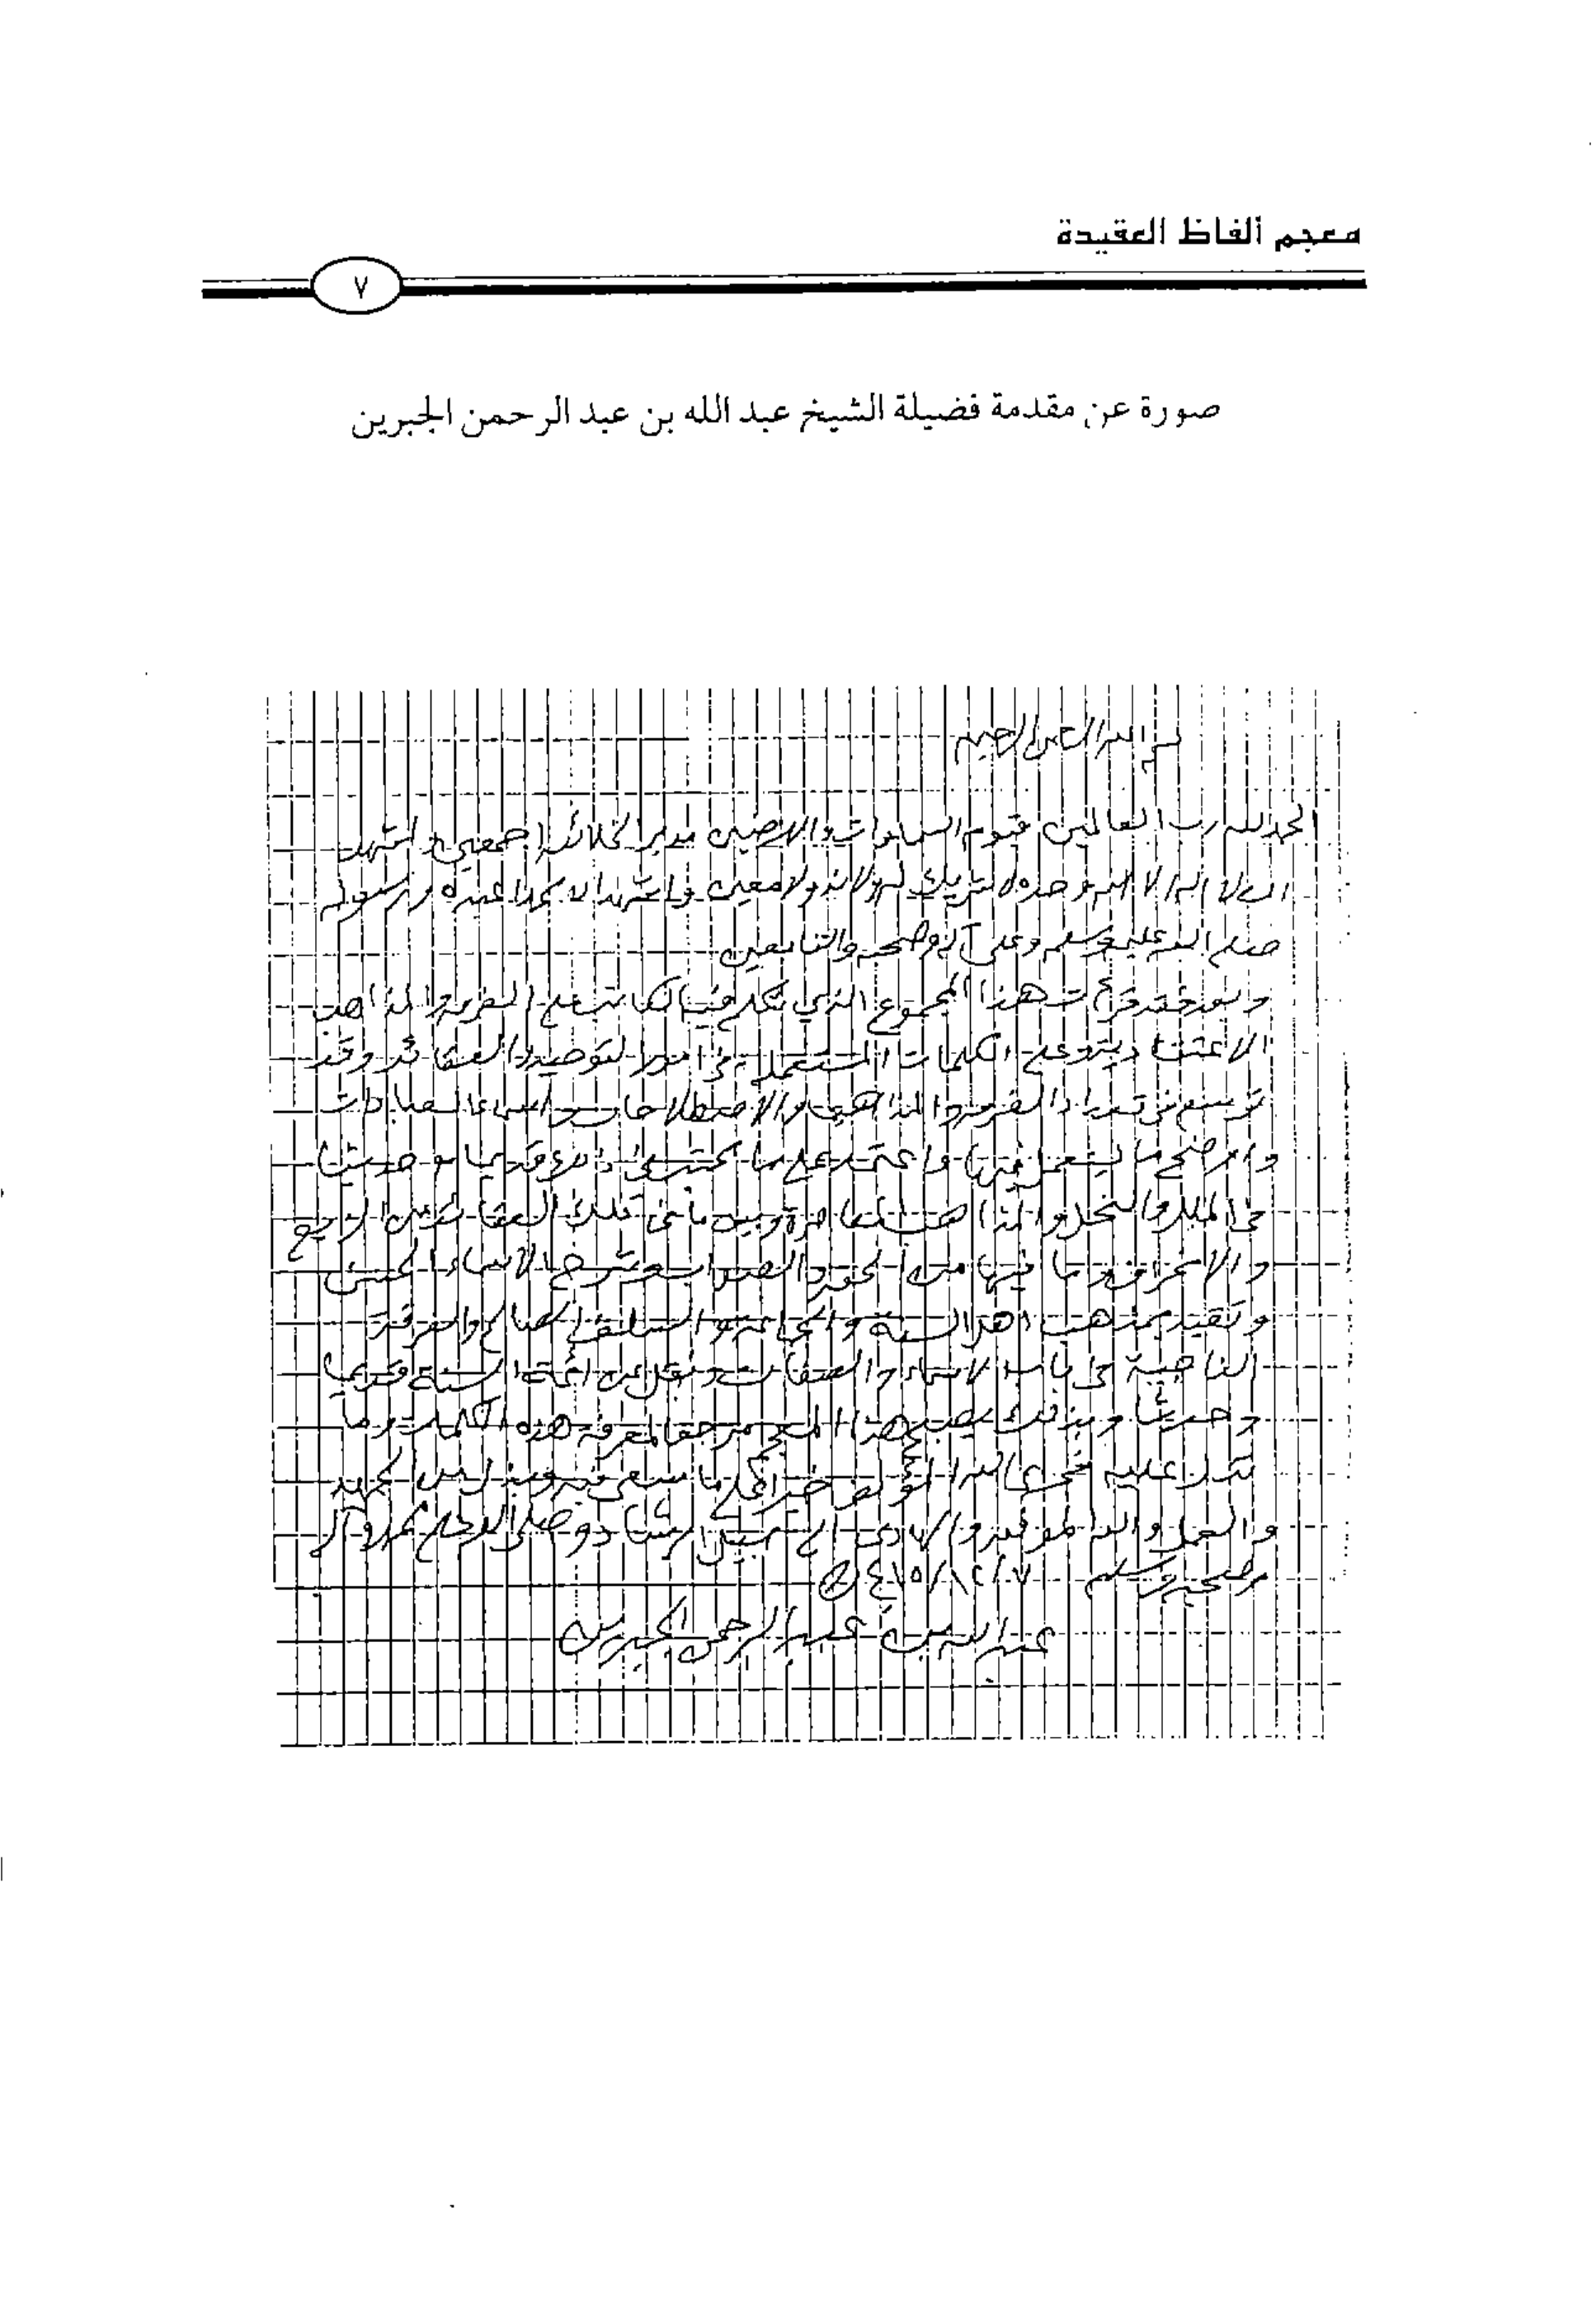 معجم ألفاظ العقيدة
٧
صورة عن مقدمة فضيلة الشيخ عبد الله بن عبد الرحمن الجبرين
بسم الله الرحمن الرحيم
الحمد لله رب العالمين قيوم السماوات والارضين مدبر الخلائق اجمعين واشهد
ان لا اله الا الله وحده لا شريك له ولا ند ولا معين واشهد ان محمدا عبده ورسوله
صلى الله عليه وسلم وعلى آله وصحبه والتابعين
وبعد فقد قرأت هذا المجموع الذي تكلم فيه الكاتب على الفرق والمذاهب
الاعتقادية وعلى الكلمات المستعملة في امور التوحيد والعقائد وقد
توسع في تعداد الفرق والمذاهب والاصطلاحات واسماء العبادات
واوضح ما يستعمل فيها واعتمد على ما كتب في ذلك قديما وحديثا
في الملل والنحل والمذاهب المعاصرة وبين ما في تلك العقائد من الزيغ
والانحراف وما فيها من الحق والصواب وشرح الاسماء الحسنى
وتقيد بمذهب اهل السنة والجماعة والسلف الصالح والفرقة
الناجية في باب الاسماء والصفات ونقل عن ائمة السنة قديما
وحديثا وبذلك يصبح هذا المعجم مرجعا لمعرفة هذه الكلمات وما
تدل عليه فجزى الله المؤلف خيرا على ما سعى فيه وبذل من الجهد
والعمل والله الموفق والهادي الى سبيل الرشاد وصلى الله على محمد وآله
وصحبه وسلم ١٤١٥/١٢/٧ هـ
عبد الله بن عبد الرحمن الجبرين